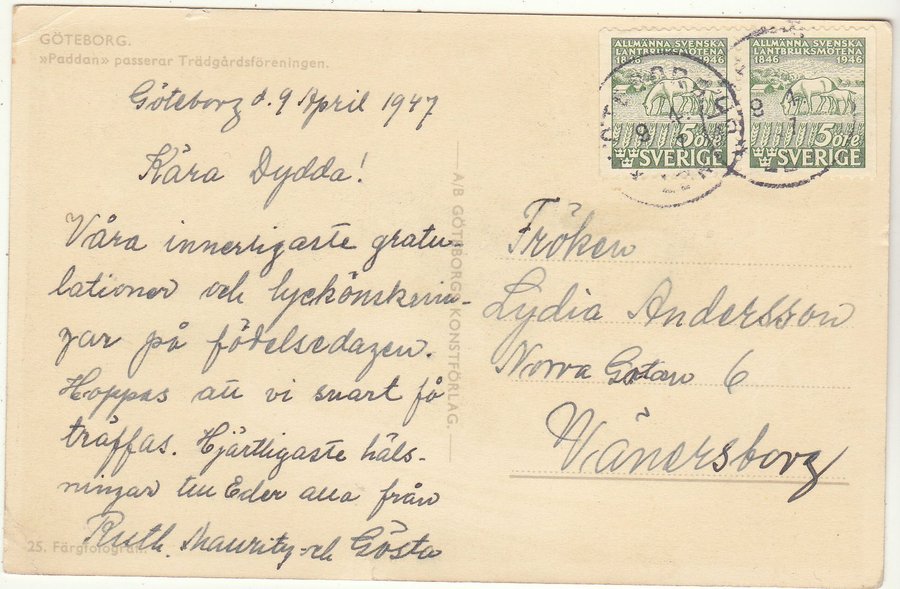 GÖTEBORG.
»Paddan» passerar Trädgårdsföreningen.
Göteborg d. 9 April 1947
Kära Dydda!
Våra innerligaste gratu-
lationer och lyckönsknin-
gar på födelsedagen.
Hoppas att vi snart få
träffas. Hjärtligaste häls-
ningar till Eder alla från
Ruth, Mauritz och Gösta
25. Färgfotografi
A/B GÖTEBORGS KONSTFÖRLAG.
ALLMÄNNA SVENSKA
LANTBRUKSMÖTENA
1846 1946
5 öre
SVERIGE
ALLMÄNNA SVENSKA
LANTBRUKSMÖTENA
1846 1946
5 öre
SVERIGE
Fröken
Lydia Andersson
Norra Gatan 6
Vänersborg